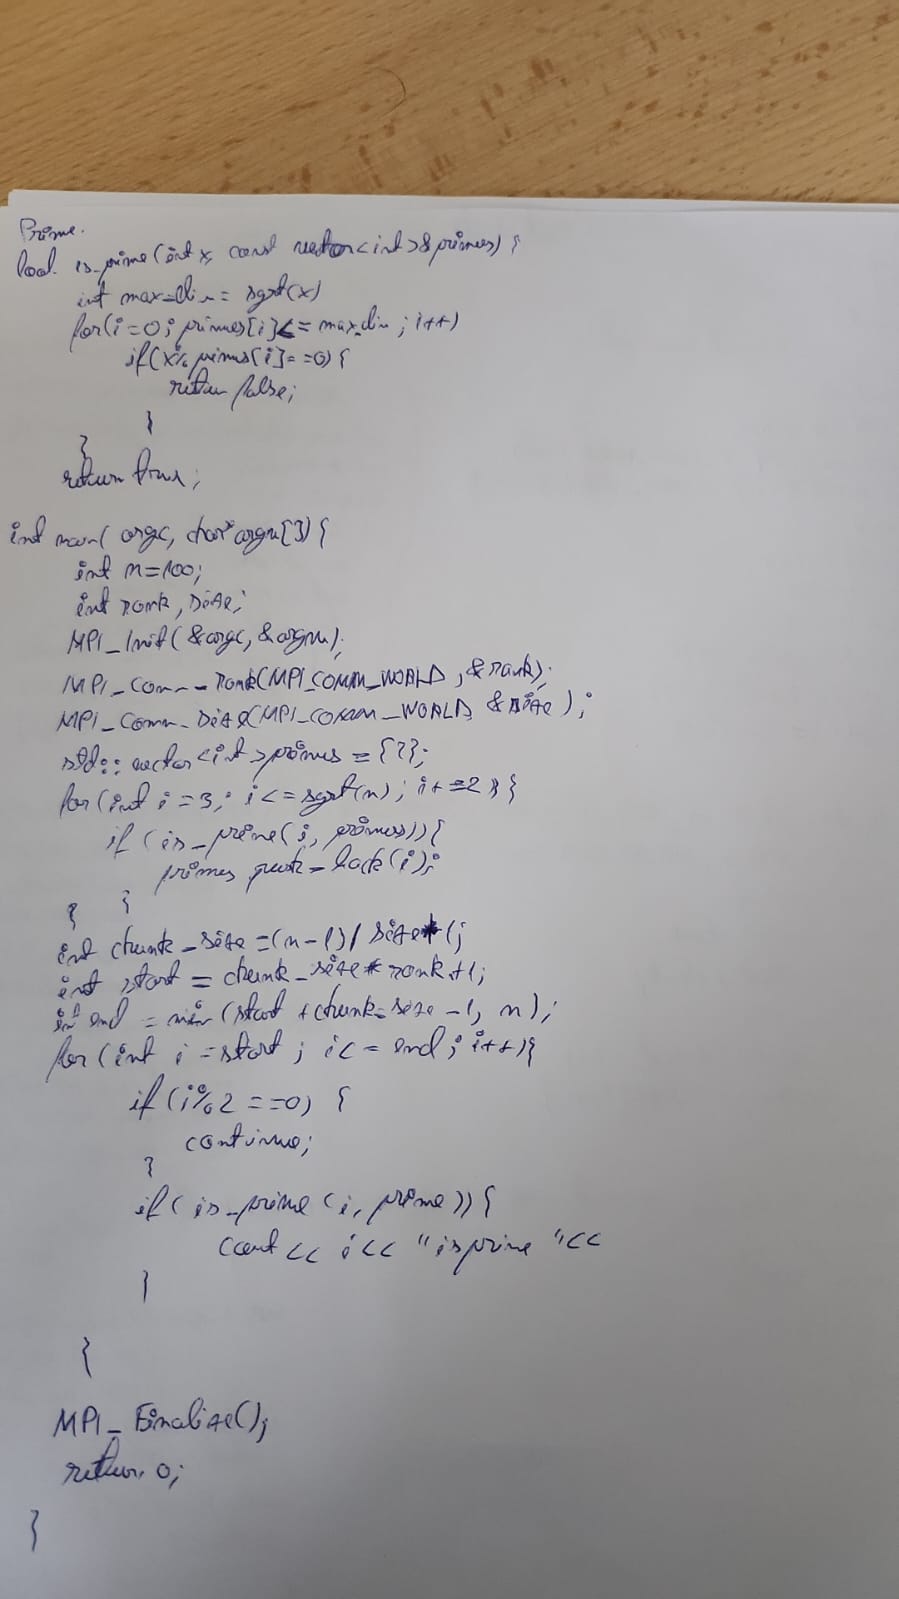 Prime.
bool is_prime(int x, const vector<int>& primes) {
int max_div = sqrt(x)
for(i=0; primes[i]<= max_div; i++)
if(x% primes[i]==0) {
return false;
}
}
return true;
int main( argc, char* argv[]) {
int n=100;
int rank, size;
MPI_Init(&argc, &argv);
MPI_Comm_rank(MPI_COMM_WORLD, &rank);
MPI_Comm_size(MPI_COMM_WORLD, &size);
std::vector<int>primes = {2};
for(int i=3; i<=sqrt(n); i+=2) {
if (is_prime(i, primes)) {
primes push_back(i);
} }
int chunk_size =(n-1)/ size+1;
int start = chunk_size* rank+1;
int end = min(start +chunk_size -1, n);
for(int i =start; i<= end; i++){
if(i%2 ==0) {
continue;
}
if( is_prime (i, prime)) {
cout << i << "is prime "<<
}
}
MPI_Finalize();
return 0;
}